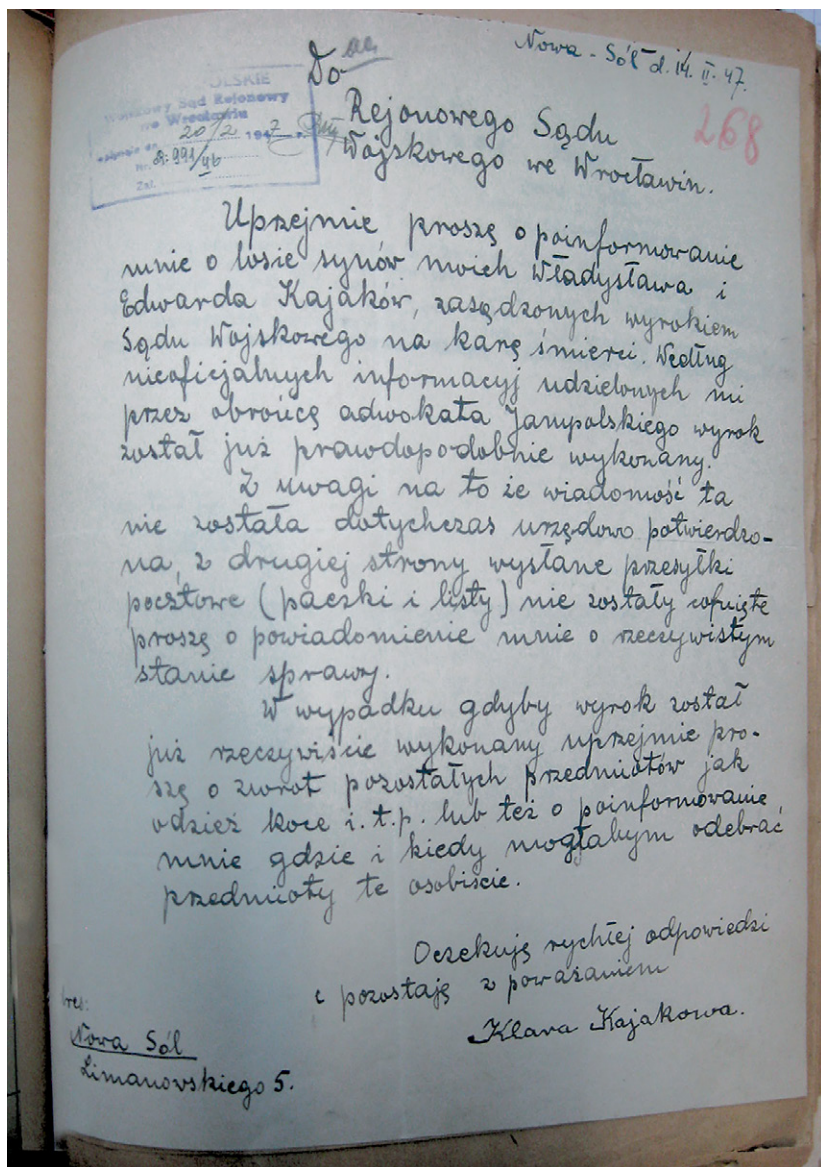 Nowa-Sól d. 14. II. 47.
Do
Rejonowego Sądu
Wojskowego we Wrocławiu.
268
POLSKIE
Wojskowy Sąd Rejonowy
we Wrocławiu
20/2 1947 r.
Nr. Sr. 991/46
Zał.
Uprzejmie proszę o poinformowanie
mnie o losie synów moich Władysława i
Edwarda Kajaków, zasądzonych wyrokiem
Sądu Wojskowego na karę śmierci. Według
nieoficjalnych informacyj udzielonych mi
przez obrońcę adwokata Jampolskiego wyrok
został już prawdopodobnie wykonany.
Z uwagi na to że wiadomość ta
nie została dotychczas urzędowo potwierdzo-
na, z drugiej strony wysłane przesyłki
pocztowe (paczki i listy) nie zostały cofnięte
proszę o powiadomienie mnie o rzeczywistym
stanie sprawy.
W wypadku gdyby wyrok został
już rzeczywiście wykonany uprzejmie pro-
szę o zwrot pozostałych przedmiotów jak
odzież koce i.t.p. lub też o poinformowanie
mnie gdzie i kiedy mogłabym odebrać
przedmioty te osobiście.
Oczekuję rychłej odpowiedzi
i pozostaję z poważaniem
Klara Kajakowa.
Nowa Sól
Limanowskiego 5.